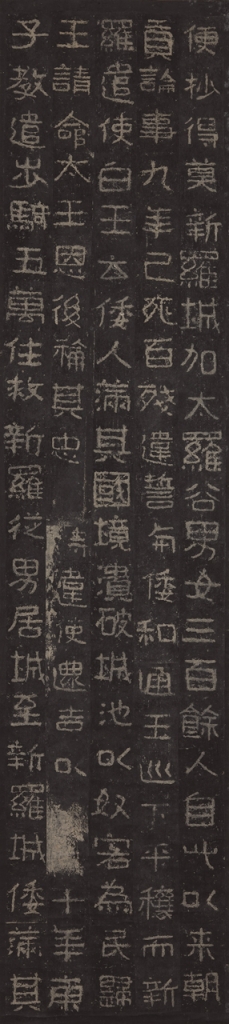 便抄得莫新羅城加太羅谷男女三百餘人自此以来朝
貢論事九年己亥百殘違誓与倭和通王巡下平穰而新
羅遣使白王云倭人滿其國境潰破城池以奴客為民歸
王請命太王恩後稱其忠遣使還告以十年庚
子教遣步騎五萬住救新羅從男居城至新羅城倭滿其